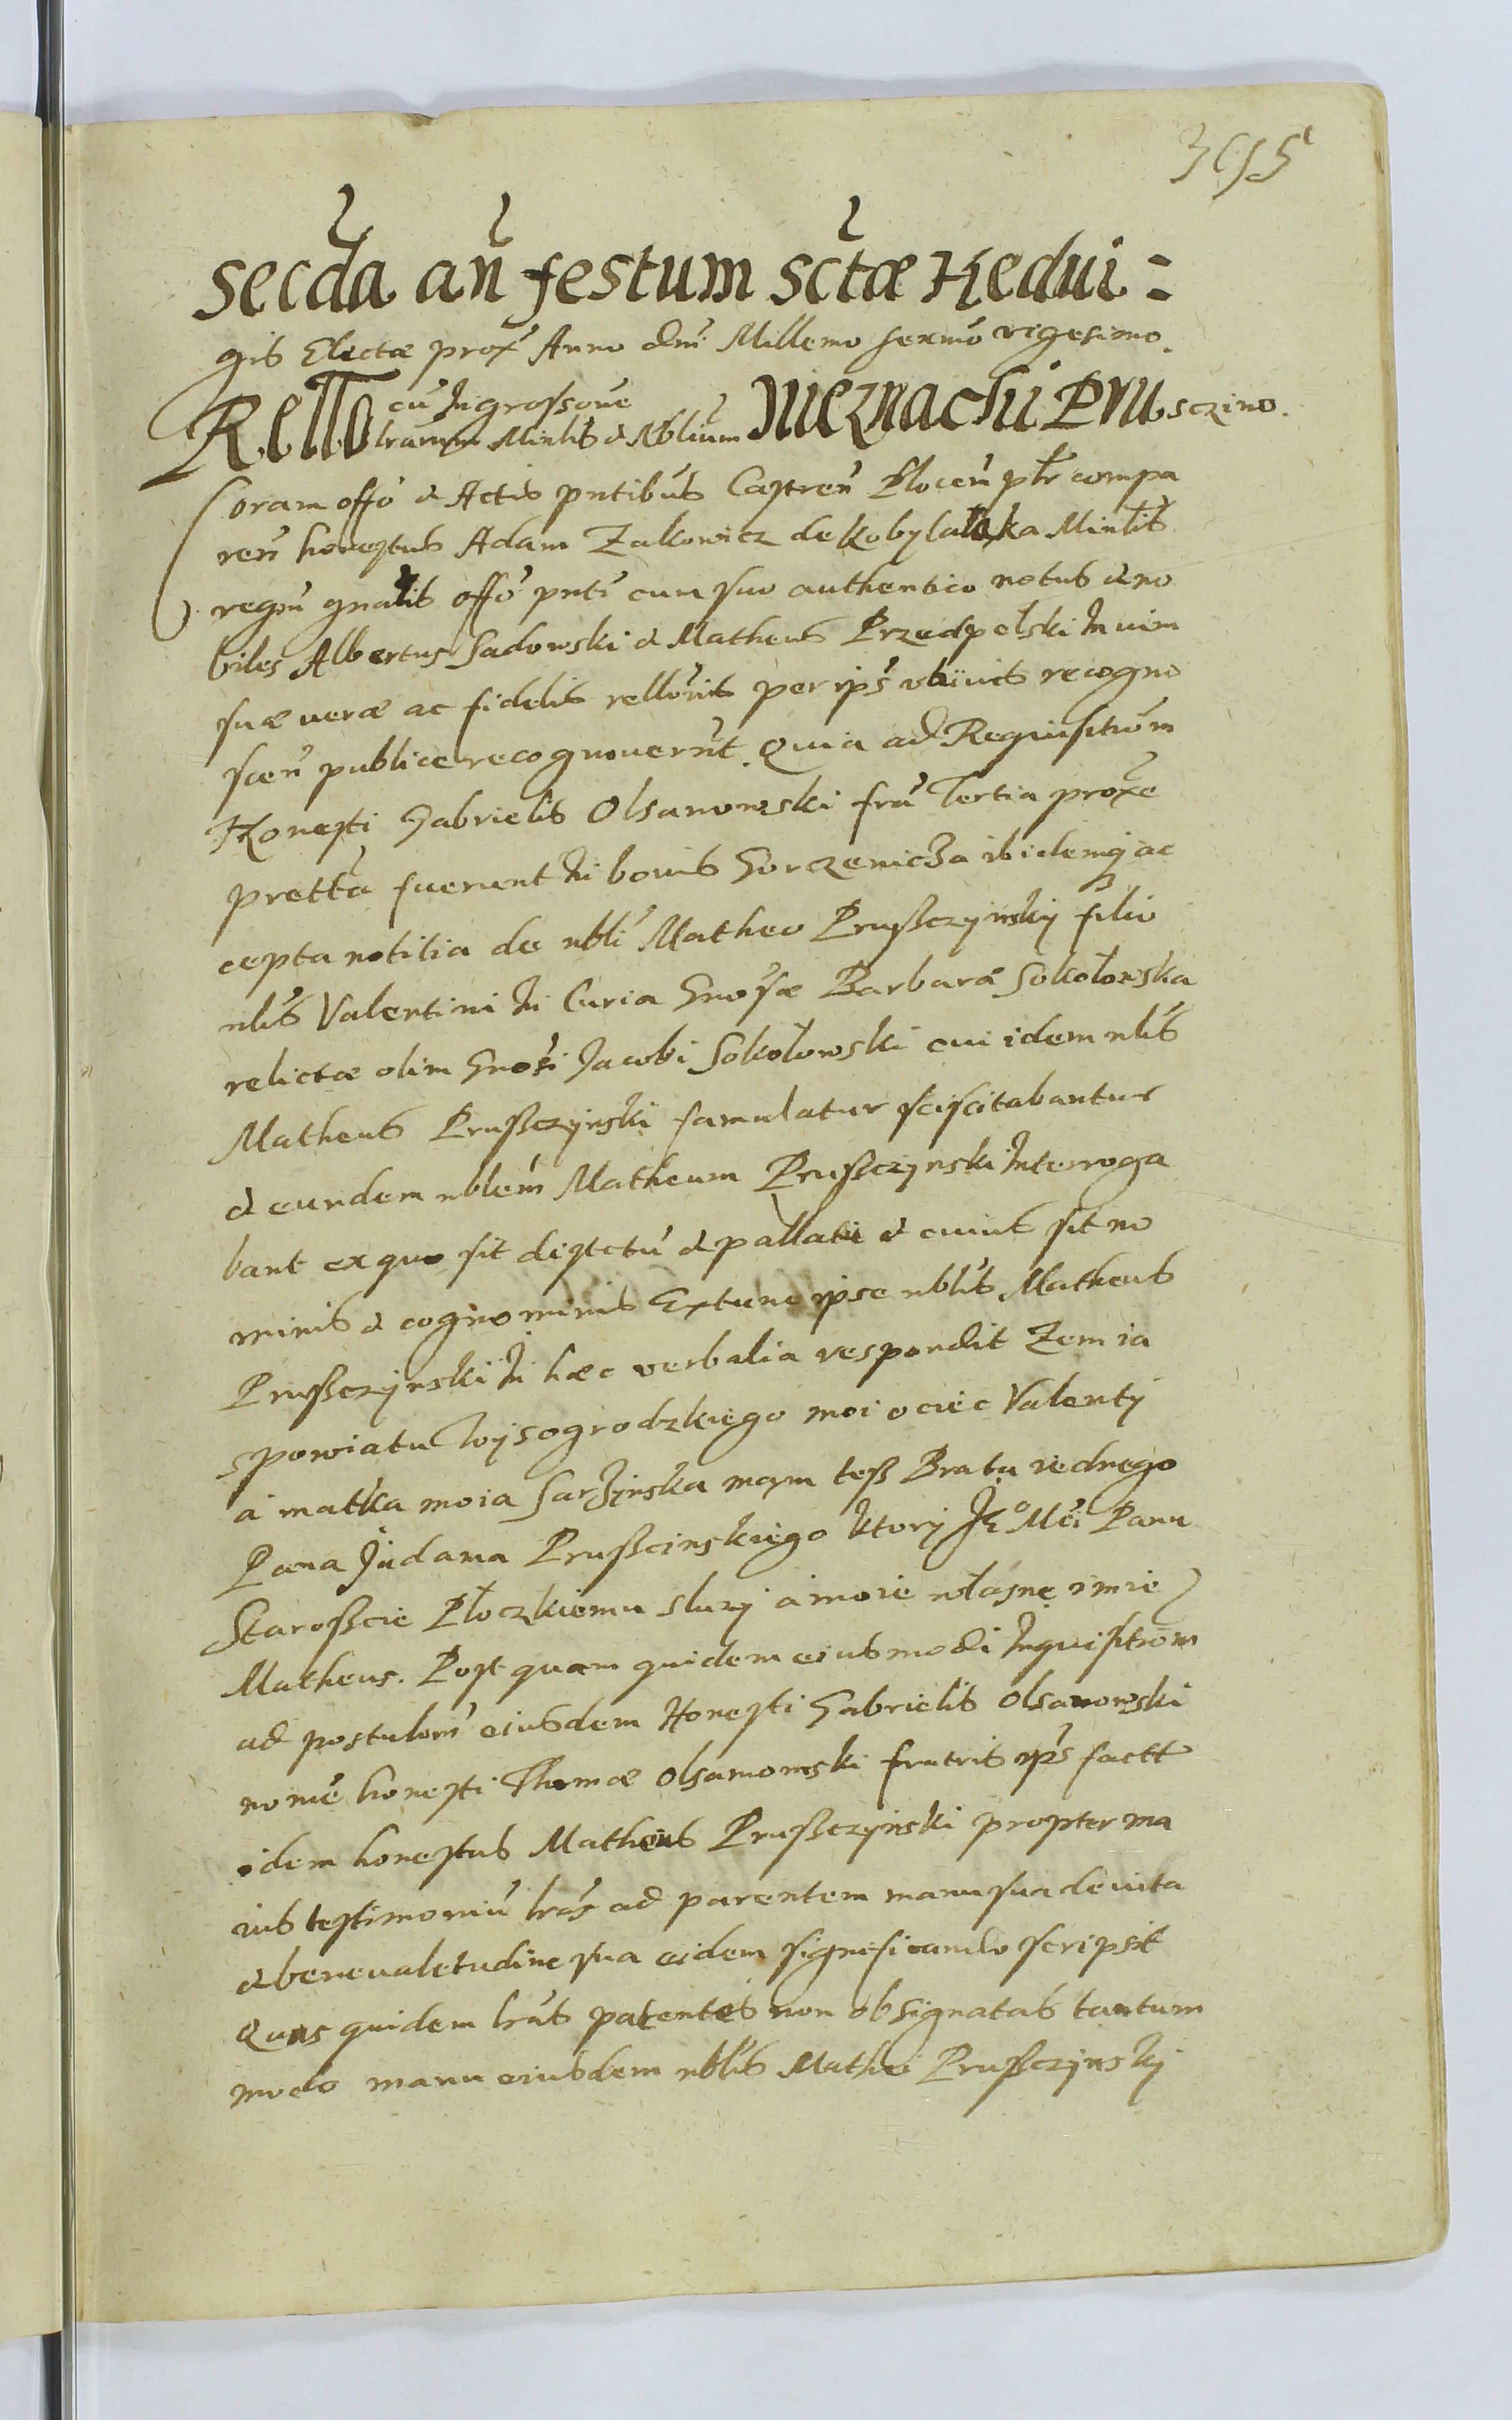 secda an festum sctæ Hedui =
gis Electæ prox Anno dni Millemo sexmo vigesimo.
Rello cu Ingrossone
lrarum Minlis & Nblium Nieznachi Pru sczino.
Coram offo & Actis pntibus Castren Plocen pltr compa
ren honestus Adam Zalkowicz de Kobylalaka Minlis
regni gnalis offo pnti cum suo authentico notus & no
biles Albertus Sadowski & Matheus Przedpelski In vim
suæ veræ ac fidelis rellonis per ips recogno
scen publice recognouerunt. Quia ad Requisitiom
Honesti Gabrielis Olsanowski fria Tertia proxe
prætta fuerunt In bonis Gorzenicza ibidemq ac
cepta notitia de nbli Matheo Prusszczynskij filio
nblis Valentini In Curia Gnosæ Barbaræ Sokołowska
relictæ olim Gnosi Jacobi Sokołowski cui idem nblis
Matheus Prusczynski famulatur sciscitabantur
& eundem nblem Matheum Prusczynski Interroga
bant ex quo sit districtu & pallatu & cuius sit no
minis & cognominis Extunc ipse nblis Matheus
Prusczynski In hæc verbalia respondit Zem ia
s powiatu Wysogrodzkiego moi ociec Valenty
a matka moia Sarzinska mąm tesz Brata iednego
Pana Judama Pruscinskiego ktory Je° Mci Panu
Staroscie Płoczkiemu sluzy a moie własne imie
Matheus. Post quam quidem eiusmodi Inquisitiom
ad postulom eiusdem Honesti Gabrielis Olsanowski
nomie honesti Thomæ Olsamowski fratris ips factt
idem honestus Matheus Prusczynski propter ma
ius testimoniu lras ad parentem manu sua de vita
& bene valetudine sua eidem significando scripsit
Quas quidem lras patentes non obsignatas tantum
modo manu eiusdem nblis Mathei Prusczynskj